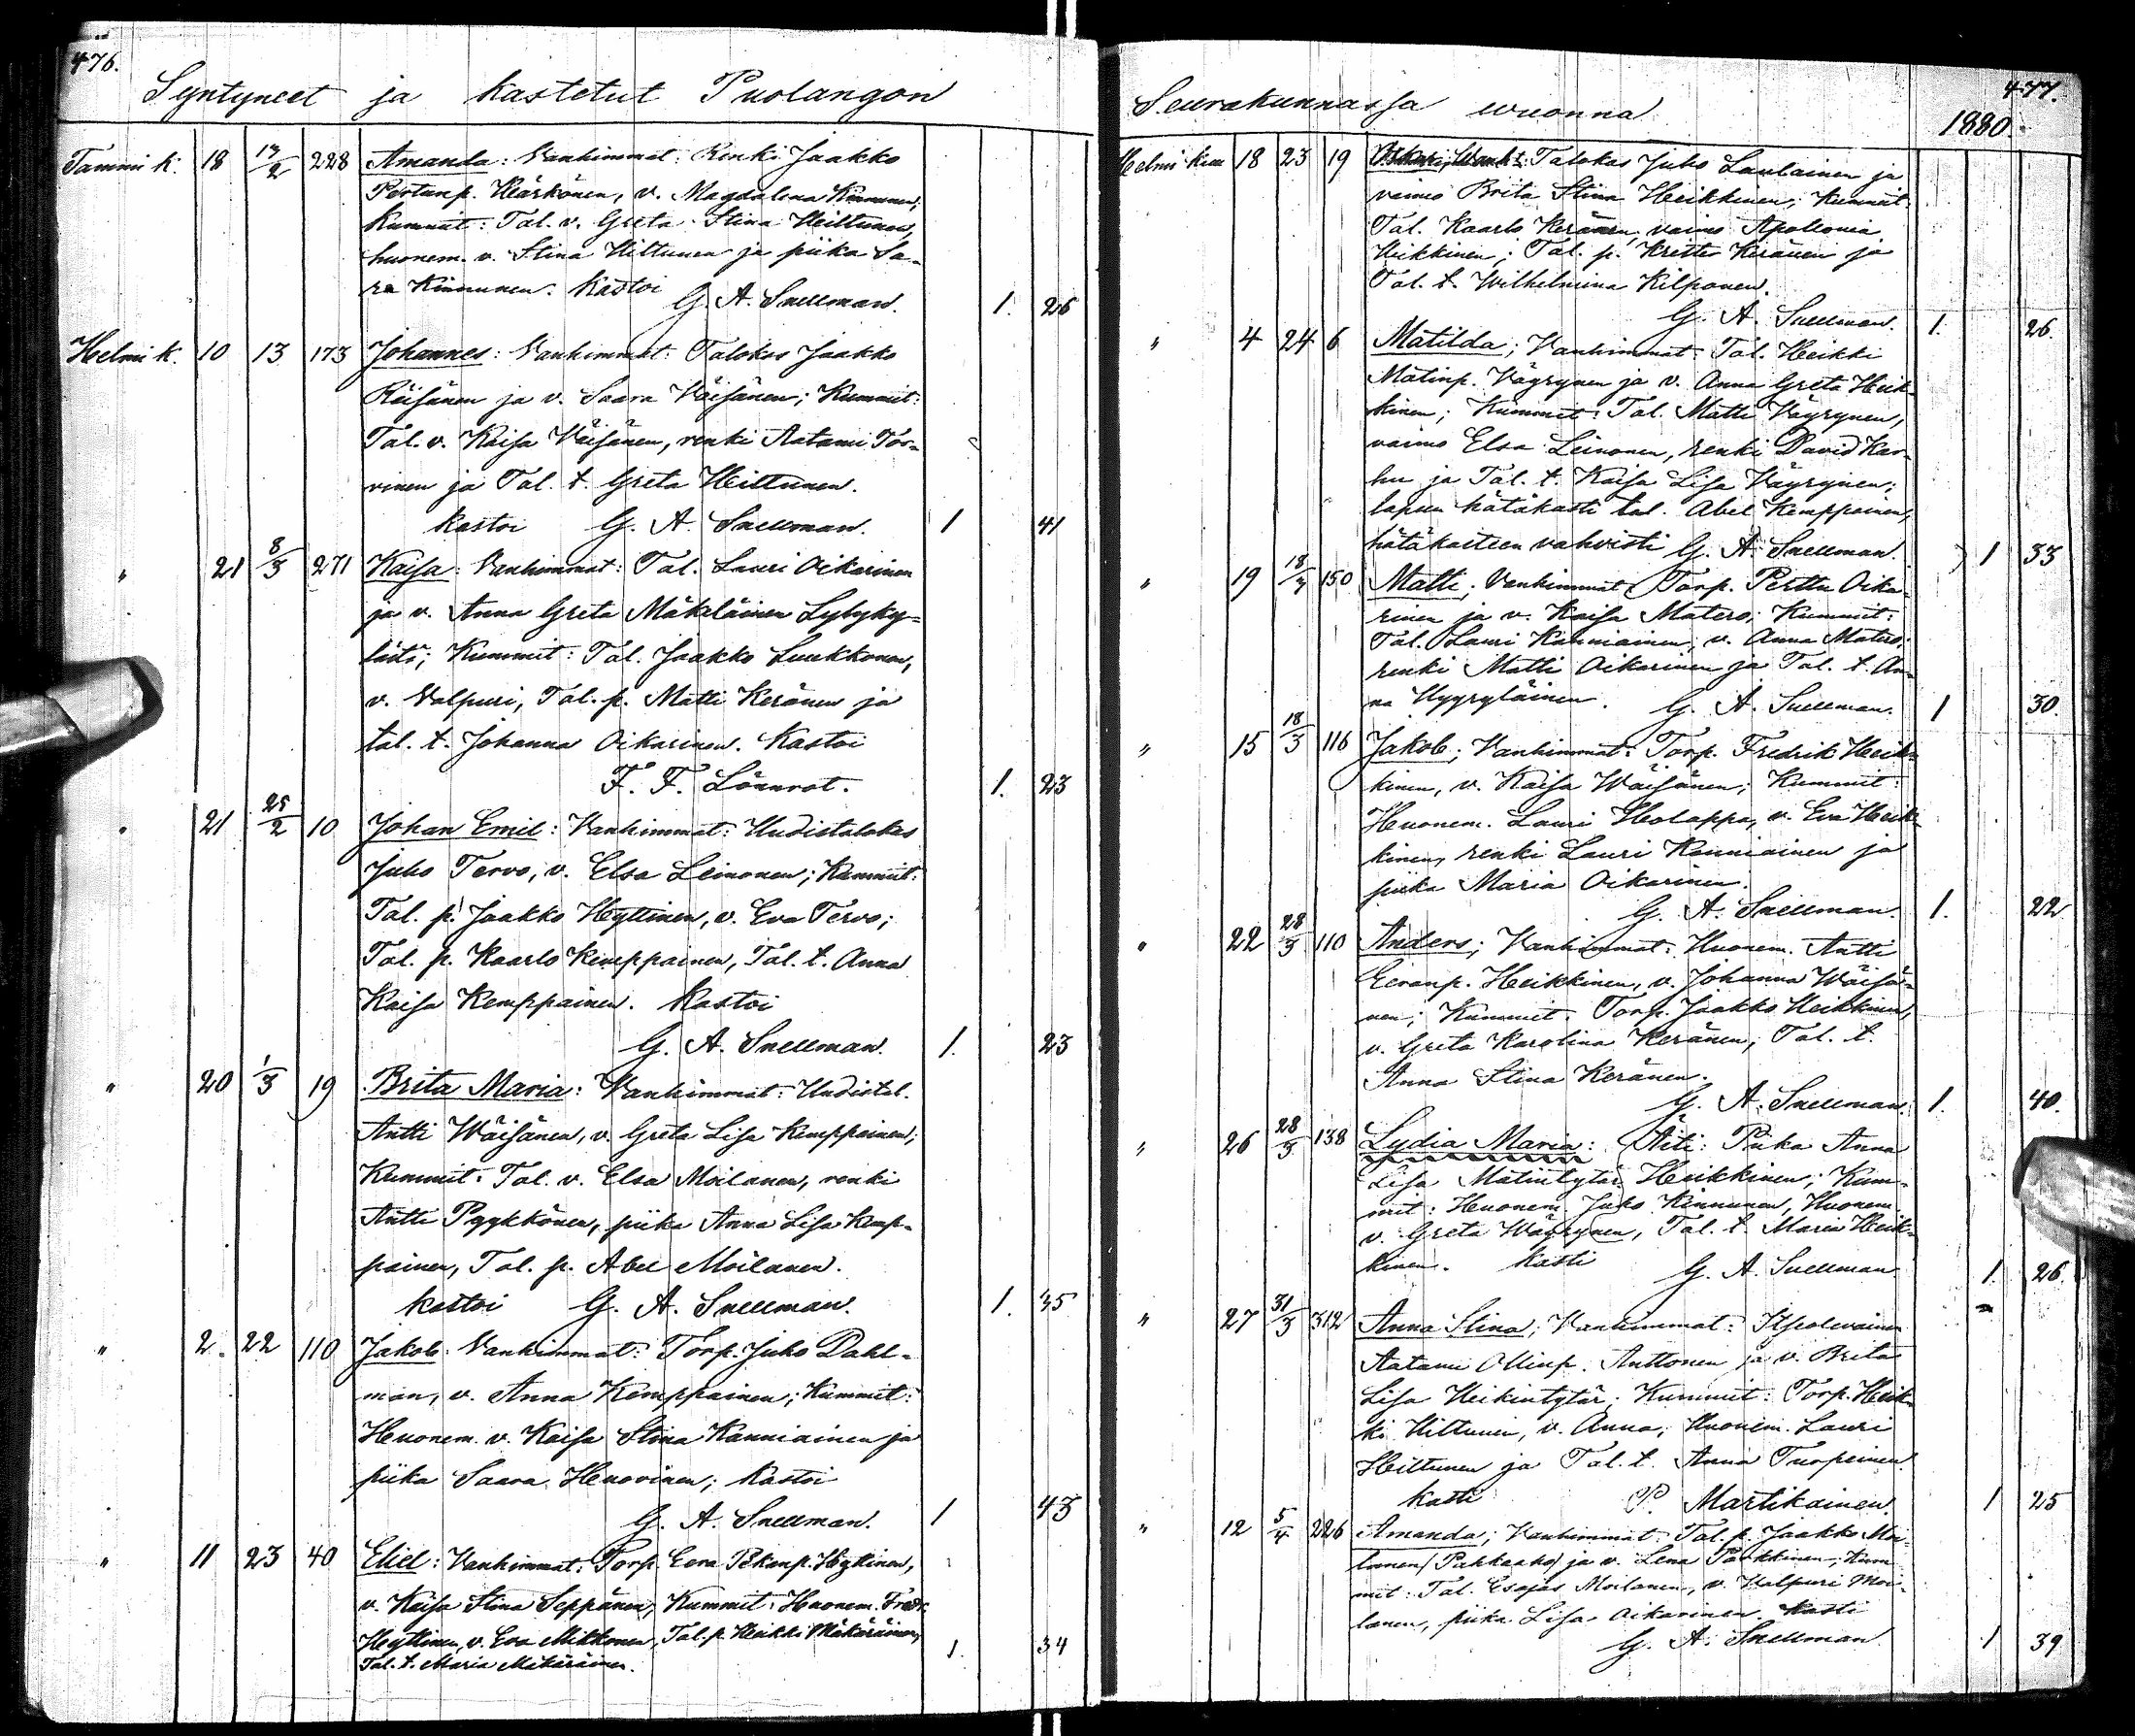 476.
Syntyneet ja kastetut Puolangon
Tammi k. 18 228 Amanda: Vanhimmat: Renki Jaakko
Pertunp. Härkönen, v. Magdalena Kinnunen;
Kummit: Tal. v. Greta Stina Heittunen,
huonem. v. Stina Hiltunen ja piika Sa-
ra Kinnunen. Kastoi
G. A. Snellman. 1. 26
Helmi k. 10 13 173 Johannes: Vanhimmat: Talokas Jaakko
Räisänen ja v. Saara Väisänen; Kummit:
Tal. v. Kaisa Väisänen, renki Aatami Tor-
vinen ja Tal. t. Greta Heittunen.
kastoi G. A. Snellman. 1 41
" 21 8/3 271 Kaisa: Vanhimmat: Tal. Lauri Oikarinen
ja v. Anna Greta Mäkeläinen Lylyky-
lästä; Kummit: Tal. Jaakko Luukkonen,
v. Valpuri, Tal. p. Matti Keränen ja
tal. t. Johanna Oikarinen. Kastoi
F. F. Lönnrot. 1. 23
" 21 25/2 10 Johan Emil: Vanhimmat: Uudistalokas
Juho Tervo, v. Elsa Leinonen; Kummit:
Tal. p. Jaakko Hyttinen, v. Eva Tervo;
Tal. p. Kaarlo Kemppainen, Tal. t. Anna
Kaisa Kemppainen. Kastoi
G. A. Snellman. 1. 23
" 20 1/3 19 Brita Maria: Vanhimmat: Uudistal.
Antti Wäisänen, v. Greta Lisa Kemppainen;
Kummit: Tal. v. Elsa Moilanen, renki
Antti Pyykkönen, piika Anna Lisa Kemp-
painen, Tal. p. Abel Moilanen.
kastoi G. A. Snellman. 1. 35
" 2. 22 110 Jakob: Vanhimmat: Torp. Juho Dahl-
man, v. Anna Kemppainen; Kummit:
Huonem. v. Kaisa Stina Kanniainen ja
piika Saara Huovinen; Kastoi
G. A. Snellman. 1 43
" 11 23 40 Eliel: Vanhimmat: Torp. Eera Pekanp. Hyttinen,
v. Kaisa Stina Seppänen; Kummit: Huonem. Fredr.
Hyttinen, v. Eva Mikkonen, Tal. p. Heikki Mäkäräinen,
Tal. t. Maria Mäkäräinen. 1. 34
477.
Seurakunnassa wuonna 1880.
Helmi kuu 18 23 19 Oskari; Talokas Juho Laulainen ja
vaimo Brita Stina Heikkinen; Kummit:
Tal. Kaarlo Keränen, vaimo Apollonia
Heikkinen; Tal. p. Keränen ja
Tal. t. Wilhelmina Kilponen.
G. A. Snellman. 1. 26.
" 4 24 6 Matilda; Vanhimmat: Tal. Heikki
Matinp. Väyrynen ja v. Anna Greta Heik-
kinen; Kummit: Tal. Matti Väyrynen,
vaimo Elsa Leinonen, renki David Kar-
hu ja Tal. t. Kaisa Lisa Väyrynen;
lapsen hätäkasti tal. Abel Kemppainen,
hätäkasteen vahvisti G. A. Snellman. 1 33
" 19 150 Matti; Vanhimmat: Torp. Perttu Oika-
rinen ja v. Kaisa Matero; Kummit:
Tal. Lauri Kanniainen, v. Anna Matero;
renki Matti Oikarinen ja Tal. t. An-
na Hyyryläinen. G. A. Snellman. 1 30.
" 15 18/3 116 Jakob; Vanhimmat: Torp. Fredrik Heik-
kinen, v. Kaisa Wäisänen; Kummit:
Huonem. Lauri Holappa, v. Eva Heik-
kinen, renki Lauri Kanniainen ja
piika Maria Oikarinen.
G. A. Snellman. 1. 22
" 22 28/3 110 Anders; Vanhimmat: Huonem. Antti
Eeranp. Heikkinen, v. Johanna Wäisä-
nen; Kummit: Torp. Jaakko Heikkinen,
v. Greta Karolina Keränen; Tal. t.
Anna Stina Keränen.
G. A. Snellman. 1. 40.
" 26 28/3 138 Lydia Maria: Äiti: Piika Anna
Lisa Matintytär Heikkinen; Kum-
mit: Huonem. Juho Kinnunen, Huonem.
v. Greta Wäyrynen, Tal. t. Maria Heik-
kinen. Kasti G. A. Snellman. 1. 26.
" 27 31/3 312 Anna Stina; Vanhimmat: Itsolevainen
Aatami Ollinp. Anttonen ja v. Brita
Lisa Heikintytär; Kummit: Torp. Heik-
ki Hiltunen, v. Anna, Huonem. Lauri
Heittunen ja Tal. t. Anna Turpeinen.
kasti P. Martikainen. 1 25
" 12 5/4 226 Amanda; Vanhimmat: Tal. p. Jaakko Moi-
lanen (Pakkaaho) ja v. Lena Parkkinen; Kum-
mit: Tal. Esajas Moilanen, v. Valpuri Moi-
lanen, piika Lisa Oikarinen. kasti
G. A. Snellman 1 39